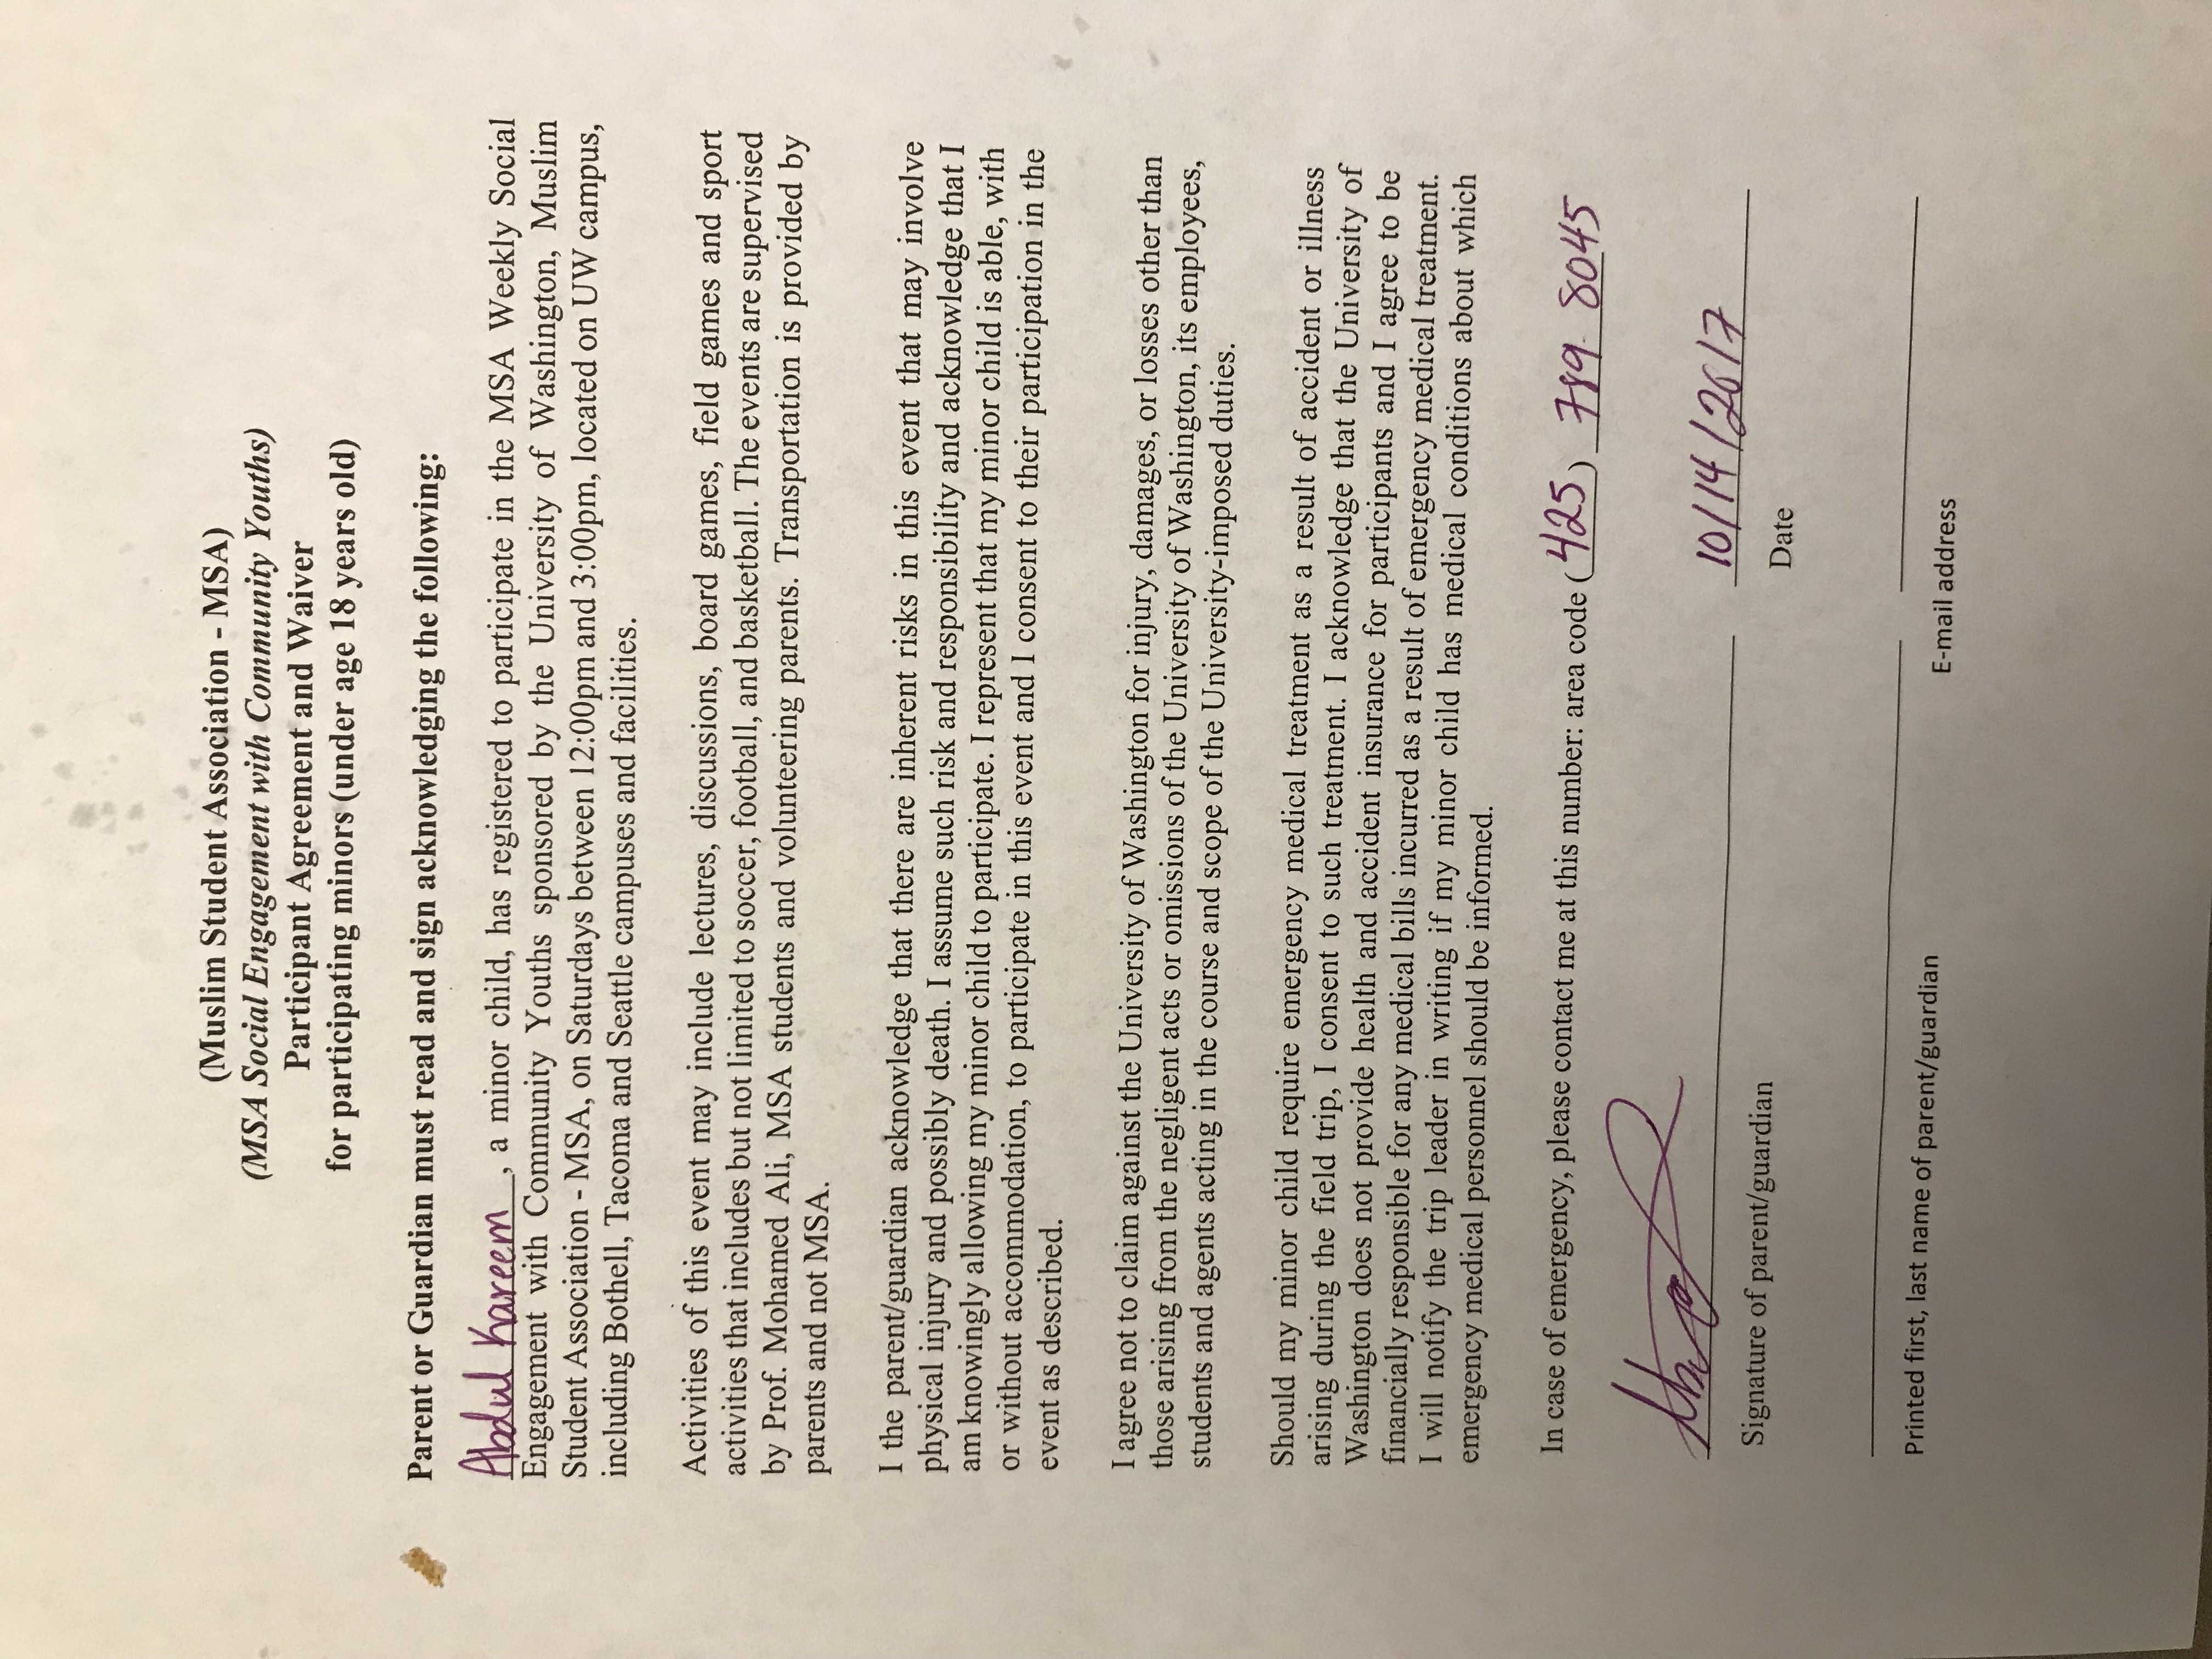 (Muslim Student Association - MSA)
(MSA Social Engagement with Community Youths)
Participant Agreement and Waiver
for participating minors (under age 18 years old)
Parent or Guardian must read and sign acknowledging the following:
Abdul Kareem, a minor child, has registered to participate in the MSA Weekly Social
Engagement with Community Youths sponsored by the University of Washington, Muslim
Student Association - MSA, on Saturdays between 12:00pm and 3:00pm, located on UW campus,
including Bothell, Tacoma and Seattle campuses and facilities.
Activities of this event may include lectures, discussions, board games, field games and sport
activities that includes but not limited to soccer, football, and basketball. The events are supervised
by Prof. Mohamed Ali, MSA students and volunteering parents. Transportation is provided by
parents and not MSA.
I the parent/guardian acknowledge that there are inherent risks in this event that may involve
physical injury and possibly death. I assume such risk and responsibility and acknowledge that I
am knowingly allowing my minor child to participate. I represent that my minor child is able, with
or without accommodation, to participate in this event and I consent to their participation in the
event as described.
I agree not to claim against the University of Washington for injury, damages, or losses other than
those arising from the negligent acts or omissions of the University of Washington, its employees,
students and agents acting in the course and scope of the University-imposed duties.
Should my minor child require emergency medical treatment as a result of accident or illness
arising during the field trip, I consent to such treatment. I acknowledge that the University of
Washington does not provide health and accident insurance for participants and I agree to be
financially responsible for any medical bills incurred as a result of emergency medical treatment.
I will notify the trip leader in writing if my minor child has medical conditions about which
emergency medical personnel should be informed.
In case of emergency, please contact me at this number: area code (425) 789 8045
10/14/2017
Signature of parent/guardian
Date
Printed first, last name of parent/guardian
E-mail address